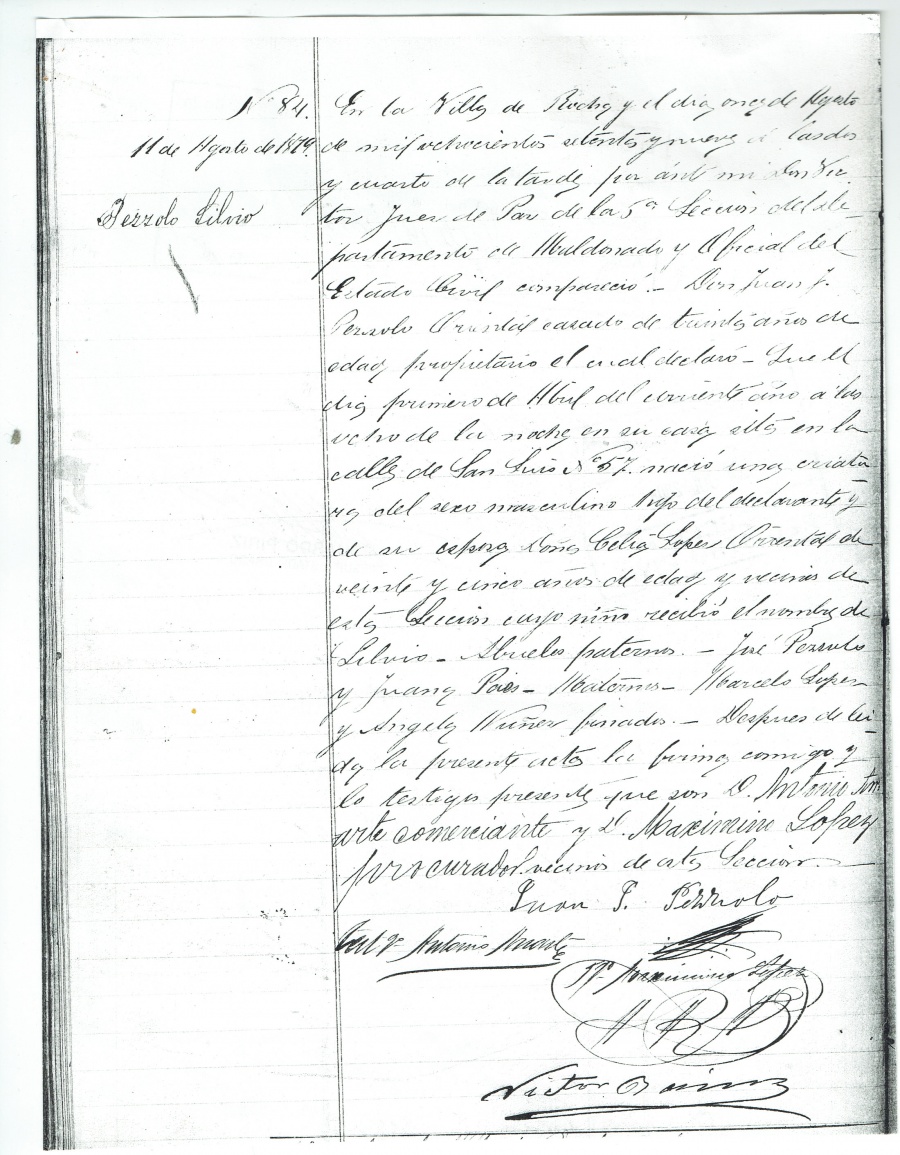 Nº 84.
11 de Agosto de 1879.
Pezzolo Silvio
En la Villa de Rocha y el dia once de Agosto
de mil ochocientos setenta y nueve á las dos
y cuarto de la tarde por ánte mi Don Vic
tor Juez de Paz de la 5ª Seccion del de
partamento de Maldonado y Oficial del
Estado Civil compareció.- Don Juan J.
Pezzolo Oriental casado de treinta años de
edad propietario el cual declaró - Que el
dia primero de Abril del corriente año a las
ocho de la noche en su casa sita en la
calle de San Luis Nº 57. nació una criatu
ra del sexo masculino hijo del declarante y
de su esposa Doña Celia Lopez Oriental de
veinte y cinco años de edad y vecinos de
esta Seccion cuyo niño recibió el nombre de
Silvio - Abuelos paternos. - José Pezzolo
y Juana Pais - Maternos - Marcelo Lopez
y Angela Nuñez finados. - Despues de lei-
da la presente acta la firma comigo y
lo testigos presente que son D. Antonio
comerciante y D. Maximino Lopez
procurador vecinos de esta Seccion. -
Juan J. Pezzolo
Antonio
Maximino Lopez
Victor